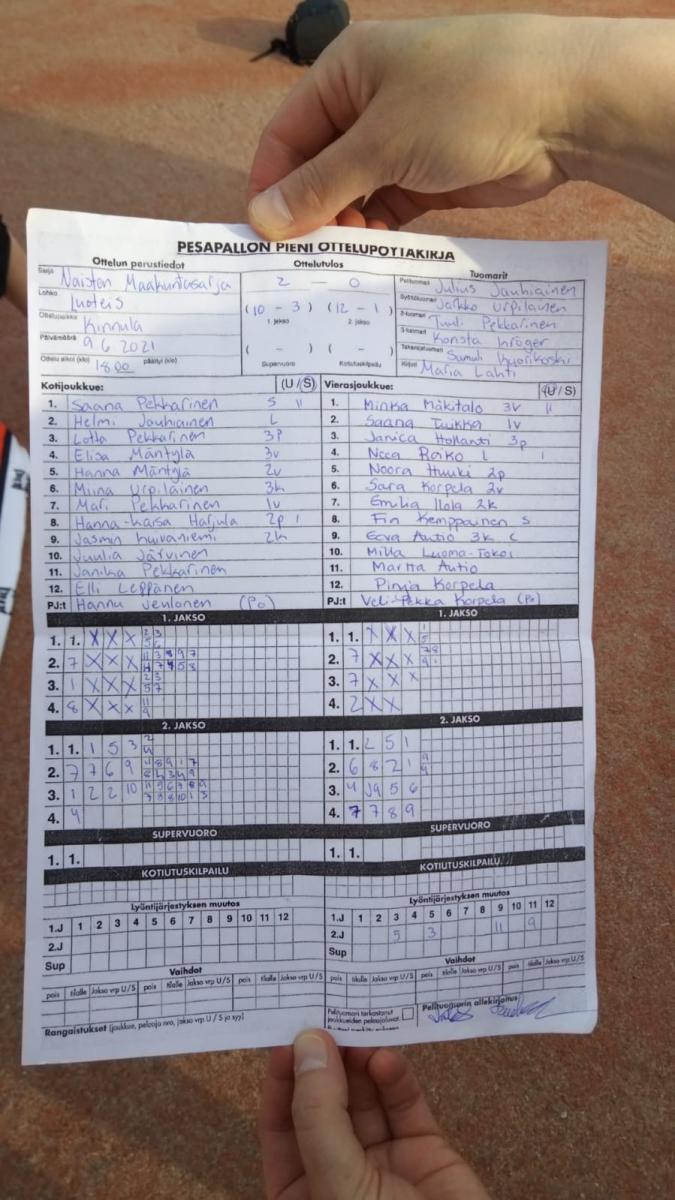 PESÄPALLON PIENI OTTELUPÖYTÄKIRJA
Ottelun perustiedot Ottelutulos Tuomarit
Sarja Naisten Maakuntasarja 2 — 0 Pelituomari Julius Jauhiainen
Lohko Luoteis (10 - 3) (12 - 1) Syöttötuomari Jarkko Urpilainen
1. jakso 2. jakso 2-tuomari Tuuli Pekkarinen
Ottelupaikka Kinnula 3-tuomari Konsta Kröger
Päivämäärä 9.6.2021 ( - ) ( - ) Takarajatuomari Samuli
Ottelu alkoi (klo) 18.00 päättyi (klo) Supervuoro Kotiutuskilpailu Kirjuri Maria Lahti
Kotijoukkue: (U/S) Vierasjoukkue: (U/S)
1. Saana Pekkarinen S II 1. Minka Mäkitalo 3v II
2. Helmi Jauhiainen L 2. Saana Tuikka 1v
3. Lotta Pekkarinen 3p 3. Janica Hollanti 3p
4. Elisa Mäntylä 3v 4. Neea Raiko L I
5. Hanna Mäntylä 2v 5. Noora Huuki 2p
6. Miina Urpilainen 3k 6. Sara Korpela 2v
7. Mari Pekkarinen 1v 7. Emilia Ilola 2k
8. Hanna-Kaisa Harjula 2p I 8. Fin Kemppainen S
9. Jasmin Kuivaniemi 2k 9. Eeva Autio 3k C
10. Juulia Järvinen 10. Milla Luoma-
11. Janika Pekkarinen 11. Martta Autio
12. Elli Leppänen 12. Pinja Korpela
PJ:t Hannu (Po) PJ:t Veli-Pekka Korpela (Po)
1. JAKSO 1. JAKSO
1. 1. X X X 1. 1. X X X
2. 7 X X X 2. 7 X X X
3. 1 X X X 3. 7 X X X
4. 8 X X X 4. 2 X X
2. JAKSO 2. JAKSO
1. 1. 1 5 3 1. 1. 2 5 1
2. 7 7 6 9 2. 6 8 2 1
3. 1 2 2 10 3. 4 9 5 6
4. 4 4. 7 7 8 9
SUPERVUORO SUPERVUORO
1. 1. 1. 1.
KOTIUTUSKILPAILU KOTIUTUSKILPAILU
Lyöntijärjestyksen muutos Lyöntijärjestyksen muutos
1.J 1 2 3 4 5 6 7 8 9 10 11 12 1.J 1 2 3 4 5 6 7 8 9 10 11 12
2.J 2.J 5 3 11 9
Sup Sup
Vaihdot Vaihdot
pois tilalle Jakso vrp U/S pois tilalle Jakso vrp U/S pois tilalle Jakso vrp U/S pois tilalle Jakso vrp U/S pois tilalle Jakso vrp U/S pois tilalle Jakso vrp U/S
Rangaistukset (joukkue, pelaaja nro, jakso vrp U / S ja syy) Pelituomari tarkastanut joukkueiden pelaajaluvat Pelituomarin allekirjoitus